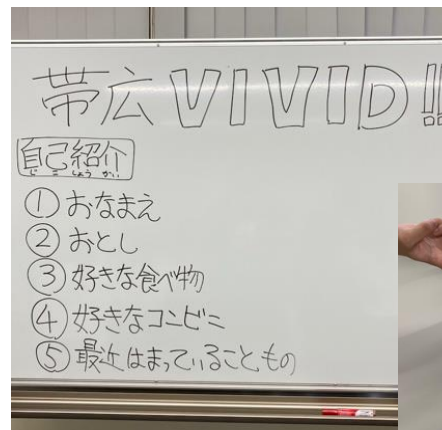 帯広VIVID!!
自己紹介
じこしょうかい
①おなまえ
②おとし
③好きな食べ物
④好きなコンビニ
⑤最近はまっていることもの